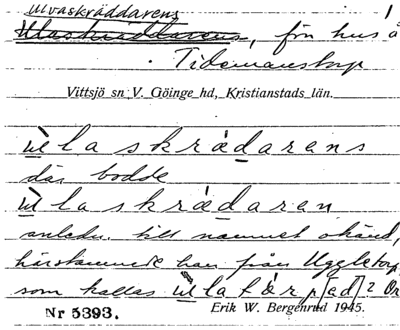 Ulvaskräddarens
Ulvaskräddarens, fön hus å
Tidemanstorp
Vittsjö sn V. Göinge hd, Kristianstads län.
ùlaskrädarens
där bodde
ùlaskrädaren
anledn. till namnet okänd,
härstammade han från Uggletorp,
som kallas ùlatärp
Nr 5393. Erik W. Bergenrud 1945.